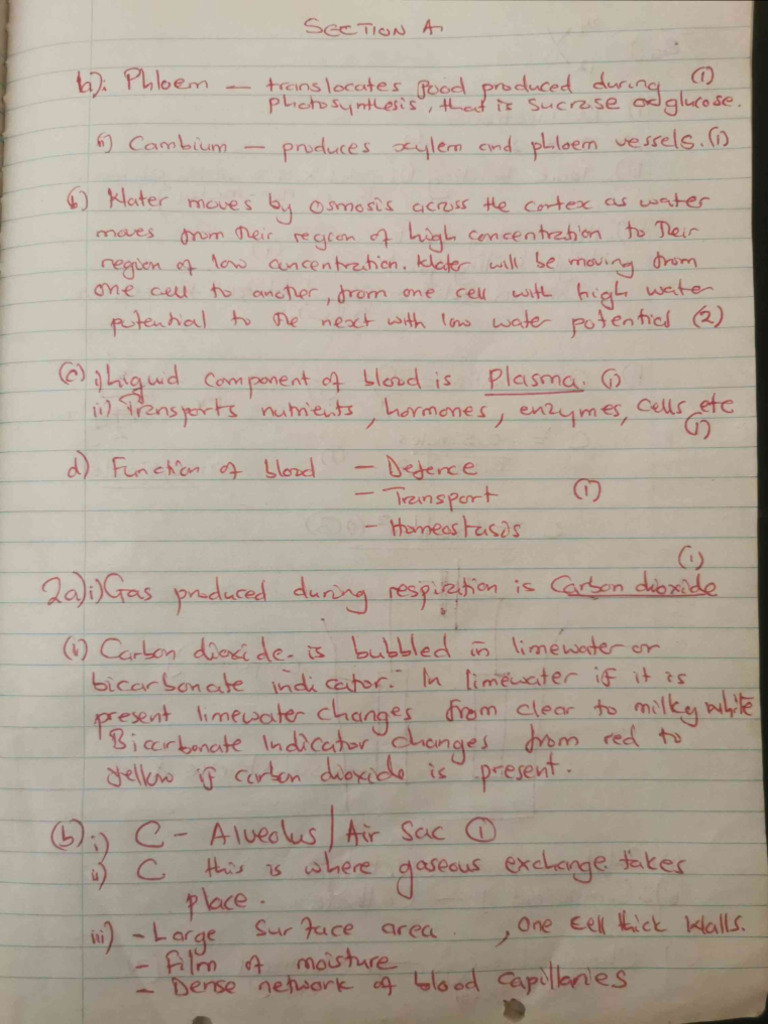 SECTION A
h): Phloem — translocates food produced during (1)
photosynthesis, that is sucrose or glucose.
ii) Cambium — produces xylem and phloem vessels. (1)
b) Water moves by osmosis across the cortex as water
moves from their region of high concentration to their
region of low concentration. Water will be moving from
one cell to another, from one cell with high water
potential to the next with low water potential (2)
(c) i) Liquid component of blood is Plasma. (1)
ii) Transports nutrients, hormones, enzymes, cells etc
(1)
d) Function of blood — Defence
— Transport (1)
— Homeostasis
(1)
2a)i) Gas produced during respiration is Carbon dioxide
(ii) Carbon dioxide is bubbled in limewater or
bicarbonate indicator. In limewater if it is
present limewater changes from clear to milky white
Bicarbonate Indicator changes from red to
yellow if carbon dioxide is present.
(b) i) C - Alveolus / Air Sac (1)
ii) C this is where gaseous exchange takes
place.
iii) - Large Surface area. , one cell thick walls.
- Film of moisture
- Dense network of blood capillaries